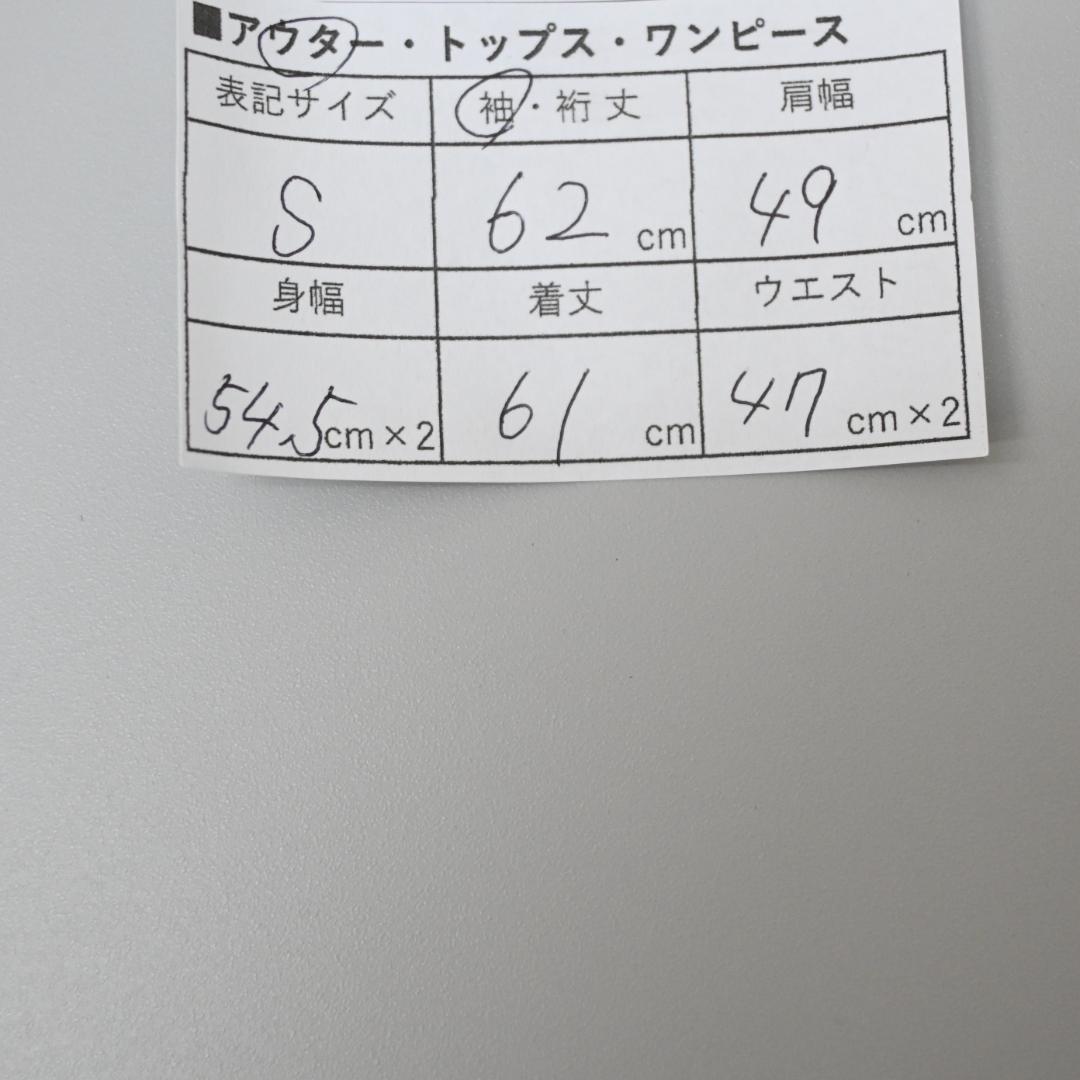 ■アウター・トップス・ワンピース
表記サイズ 袖・裄丈 肩幅
S 62 cm 49 cm
身幅 着丈 ウエスト
54.5cm×2 61 cm 47 cm×2